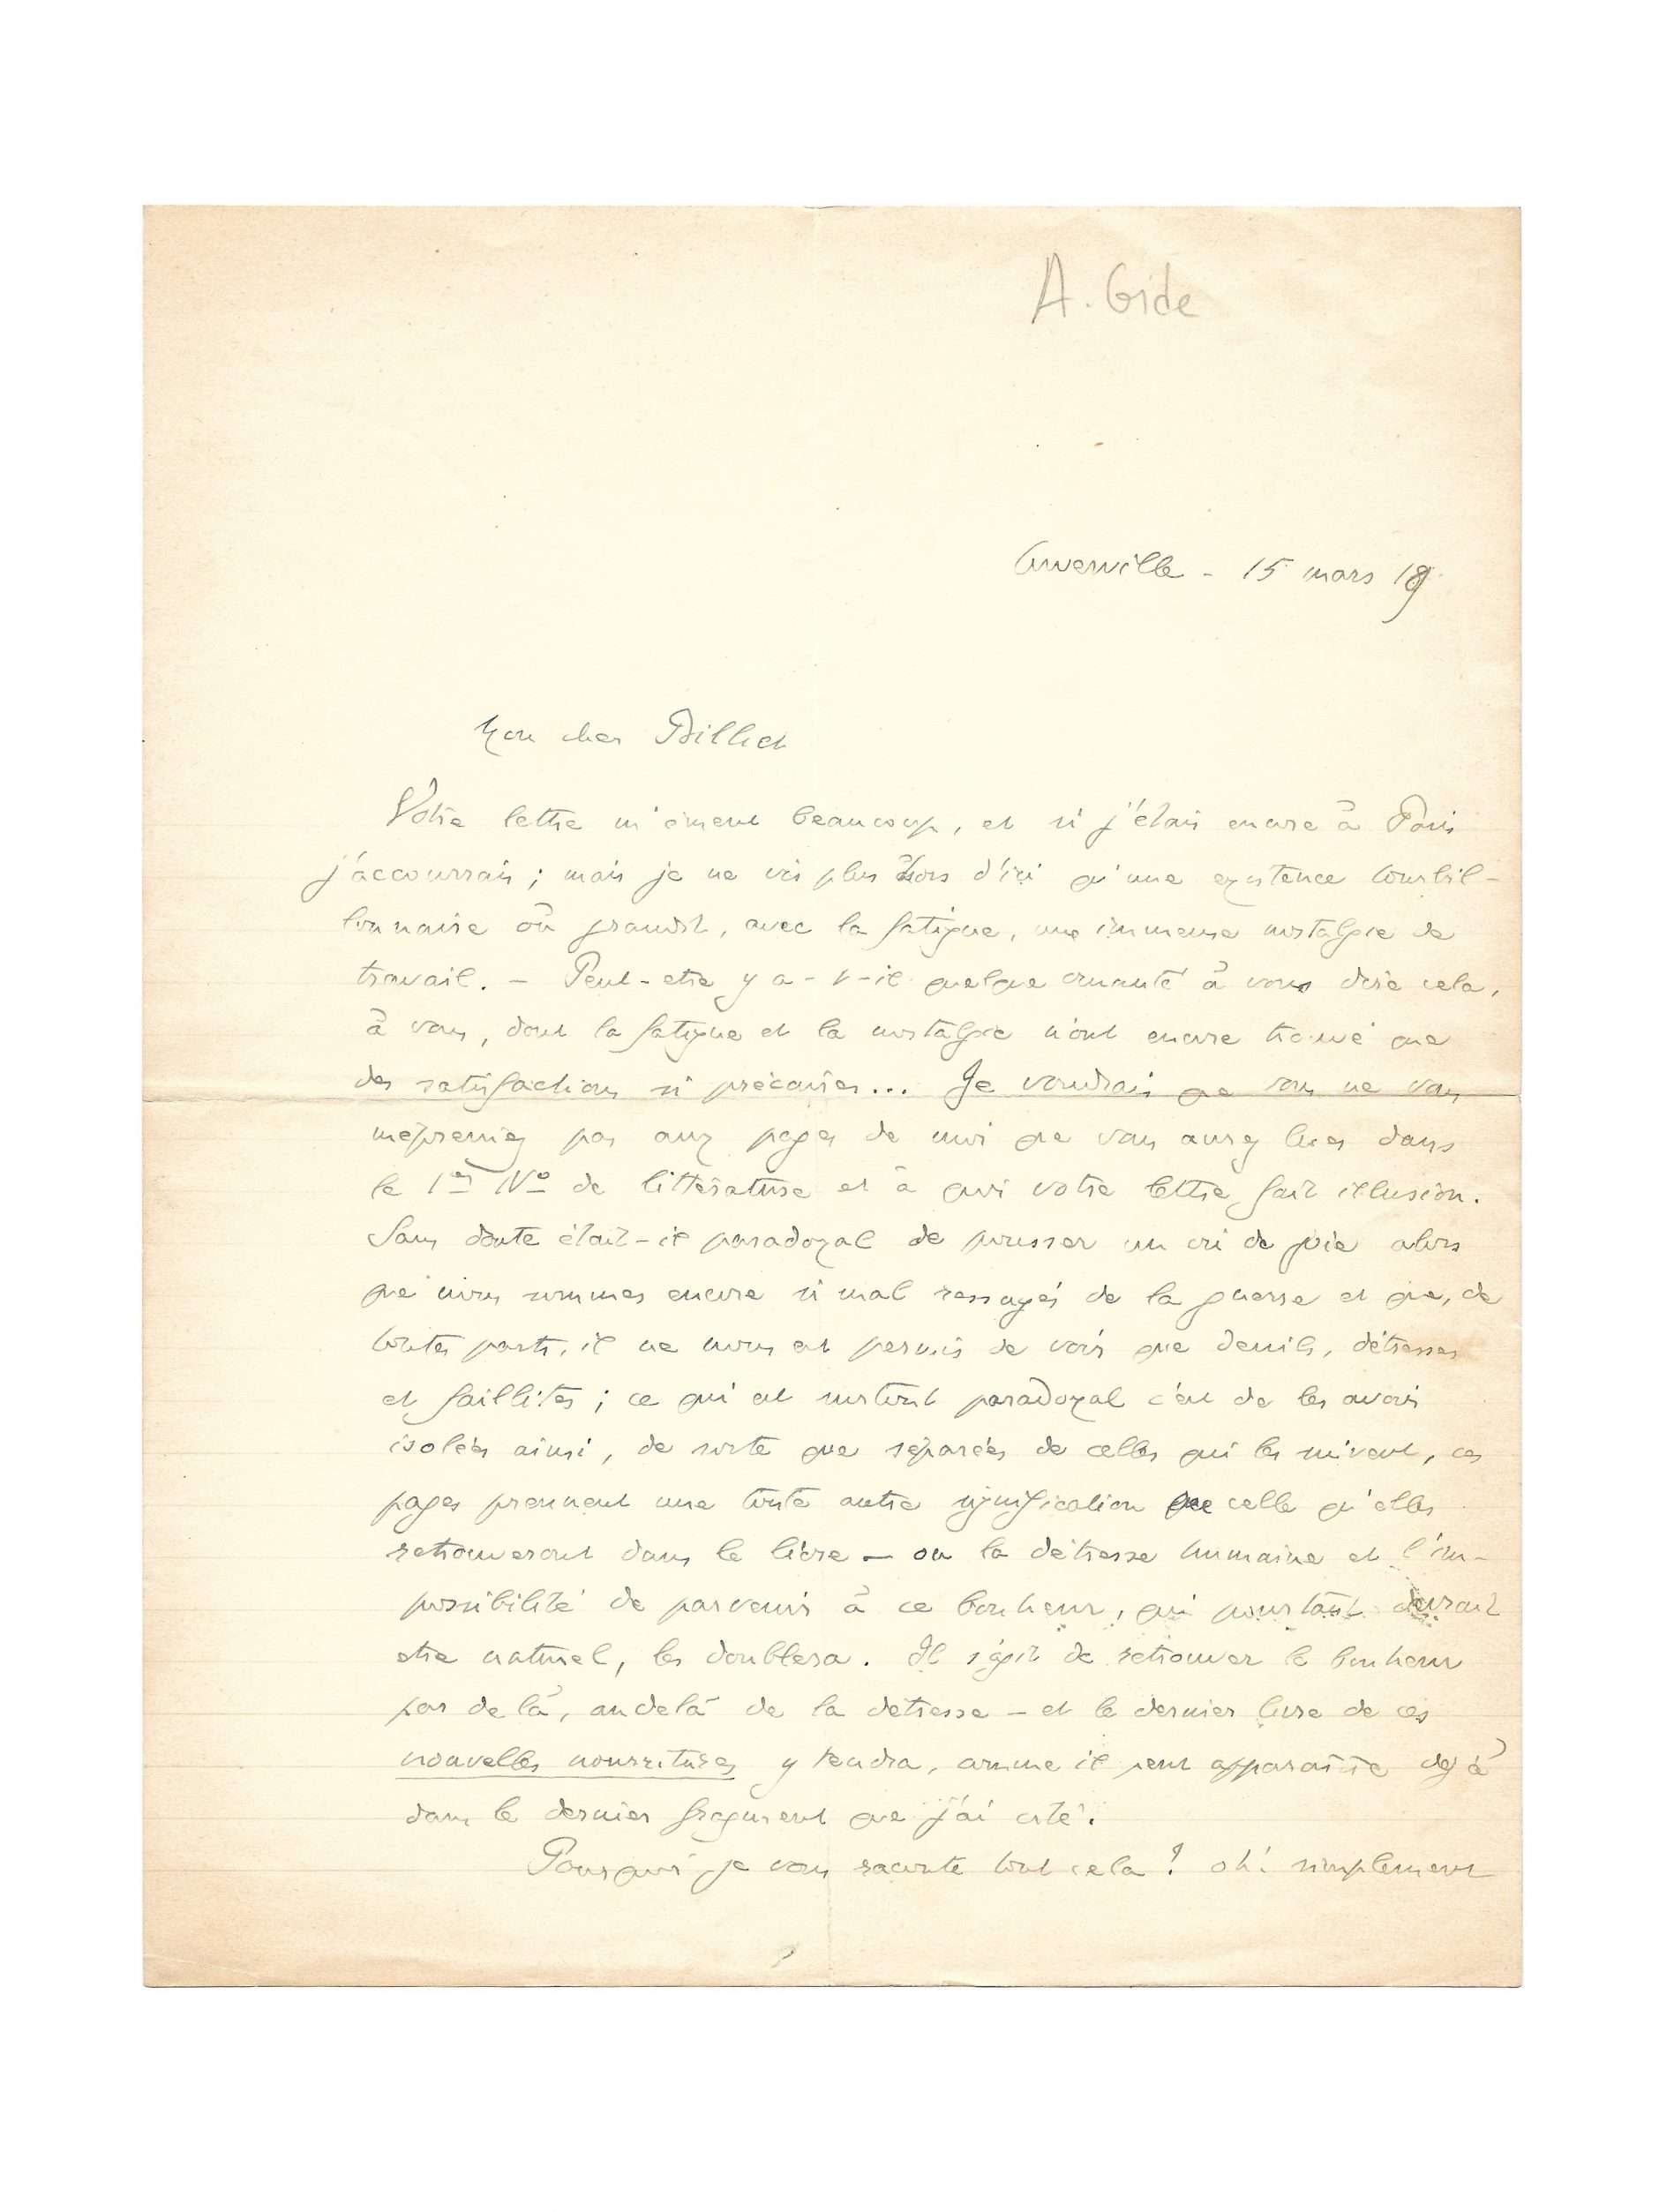 A. Gide
Cuverville - 15 mars 19
Mon cher Billiet
Votre lettre m'émeut beaucoup, et si j'étais encore à Paris
j'accourrais ; mais je ne vis plus hors d'ici qu'une existence tourbil-
lonnaire où grandit, avec la fatigue, une immense nostalgie de
travail. - Peut-etre y a-t-il quelque cruauté à vous dire cela,
à vous, dont la fatigue et la nostalgie n'ont encore trouvé que
des satisfactions si précaires... Je voudrais que vous ne vous
mépreniez pas aux pages de moi que vous avez lues dans
le 1er No de littérature et à qui votre lettre fait illusion.
Sans doute était-il paradoxal de pousser un cri de joie alors
que nous sommes encore si mal ressuyés de la guerre et que, de
toutes parts, il ne nous est permis de voir que deuils, détresses
et faillites ; ce qui est surtout paradoxal c'est de les avoir
isolées ainsi, de sorte que séparées de celles qui les suivent, ces
pages prennent une toute autre signification que celle qu'elles
retrouveront dans le livre - ou la détresse humaine et l'im-
possibilité de parvenir à ce bonheur, qui pourtant devrait
etre naturel, les doublera. Il s'agit de retrouver le bonheur
par delà, au delà de la détresse - et le dernier livre de ces
nouvelles nourritures y tendra, comme il peut apparaître déjà
dans le dernier fragment que j'ai cité.
Pourquoi je vous raconte tout cela ? oh! simplement